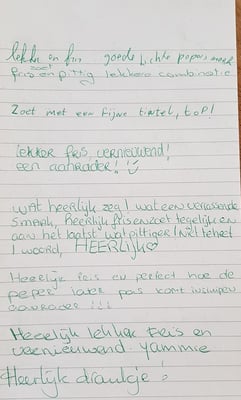 lekker en fris goede lichte peper smaak
fris en zoet pittig lekkere combinatie
Zoet met een fijne tintel, top!
lekker fris vernieuwend!
een aanrader!
wat heerlijk zeg! wat een verrassende
smaak, heerlijk fris en zoet tegelijk en
aan het laatst wat pittiger! Niet te heet
1 woord, HEERLIJK
Heerlijk fris en perfect hoe de
peper later pas komt
Heerlijk lekker fris en
vernieuwend. yammie
Heerlijk drankje!